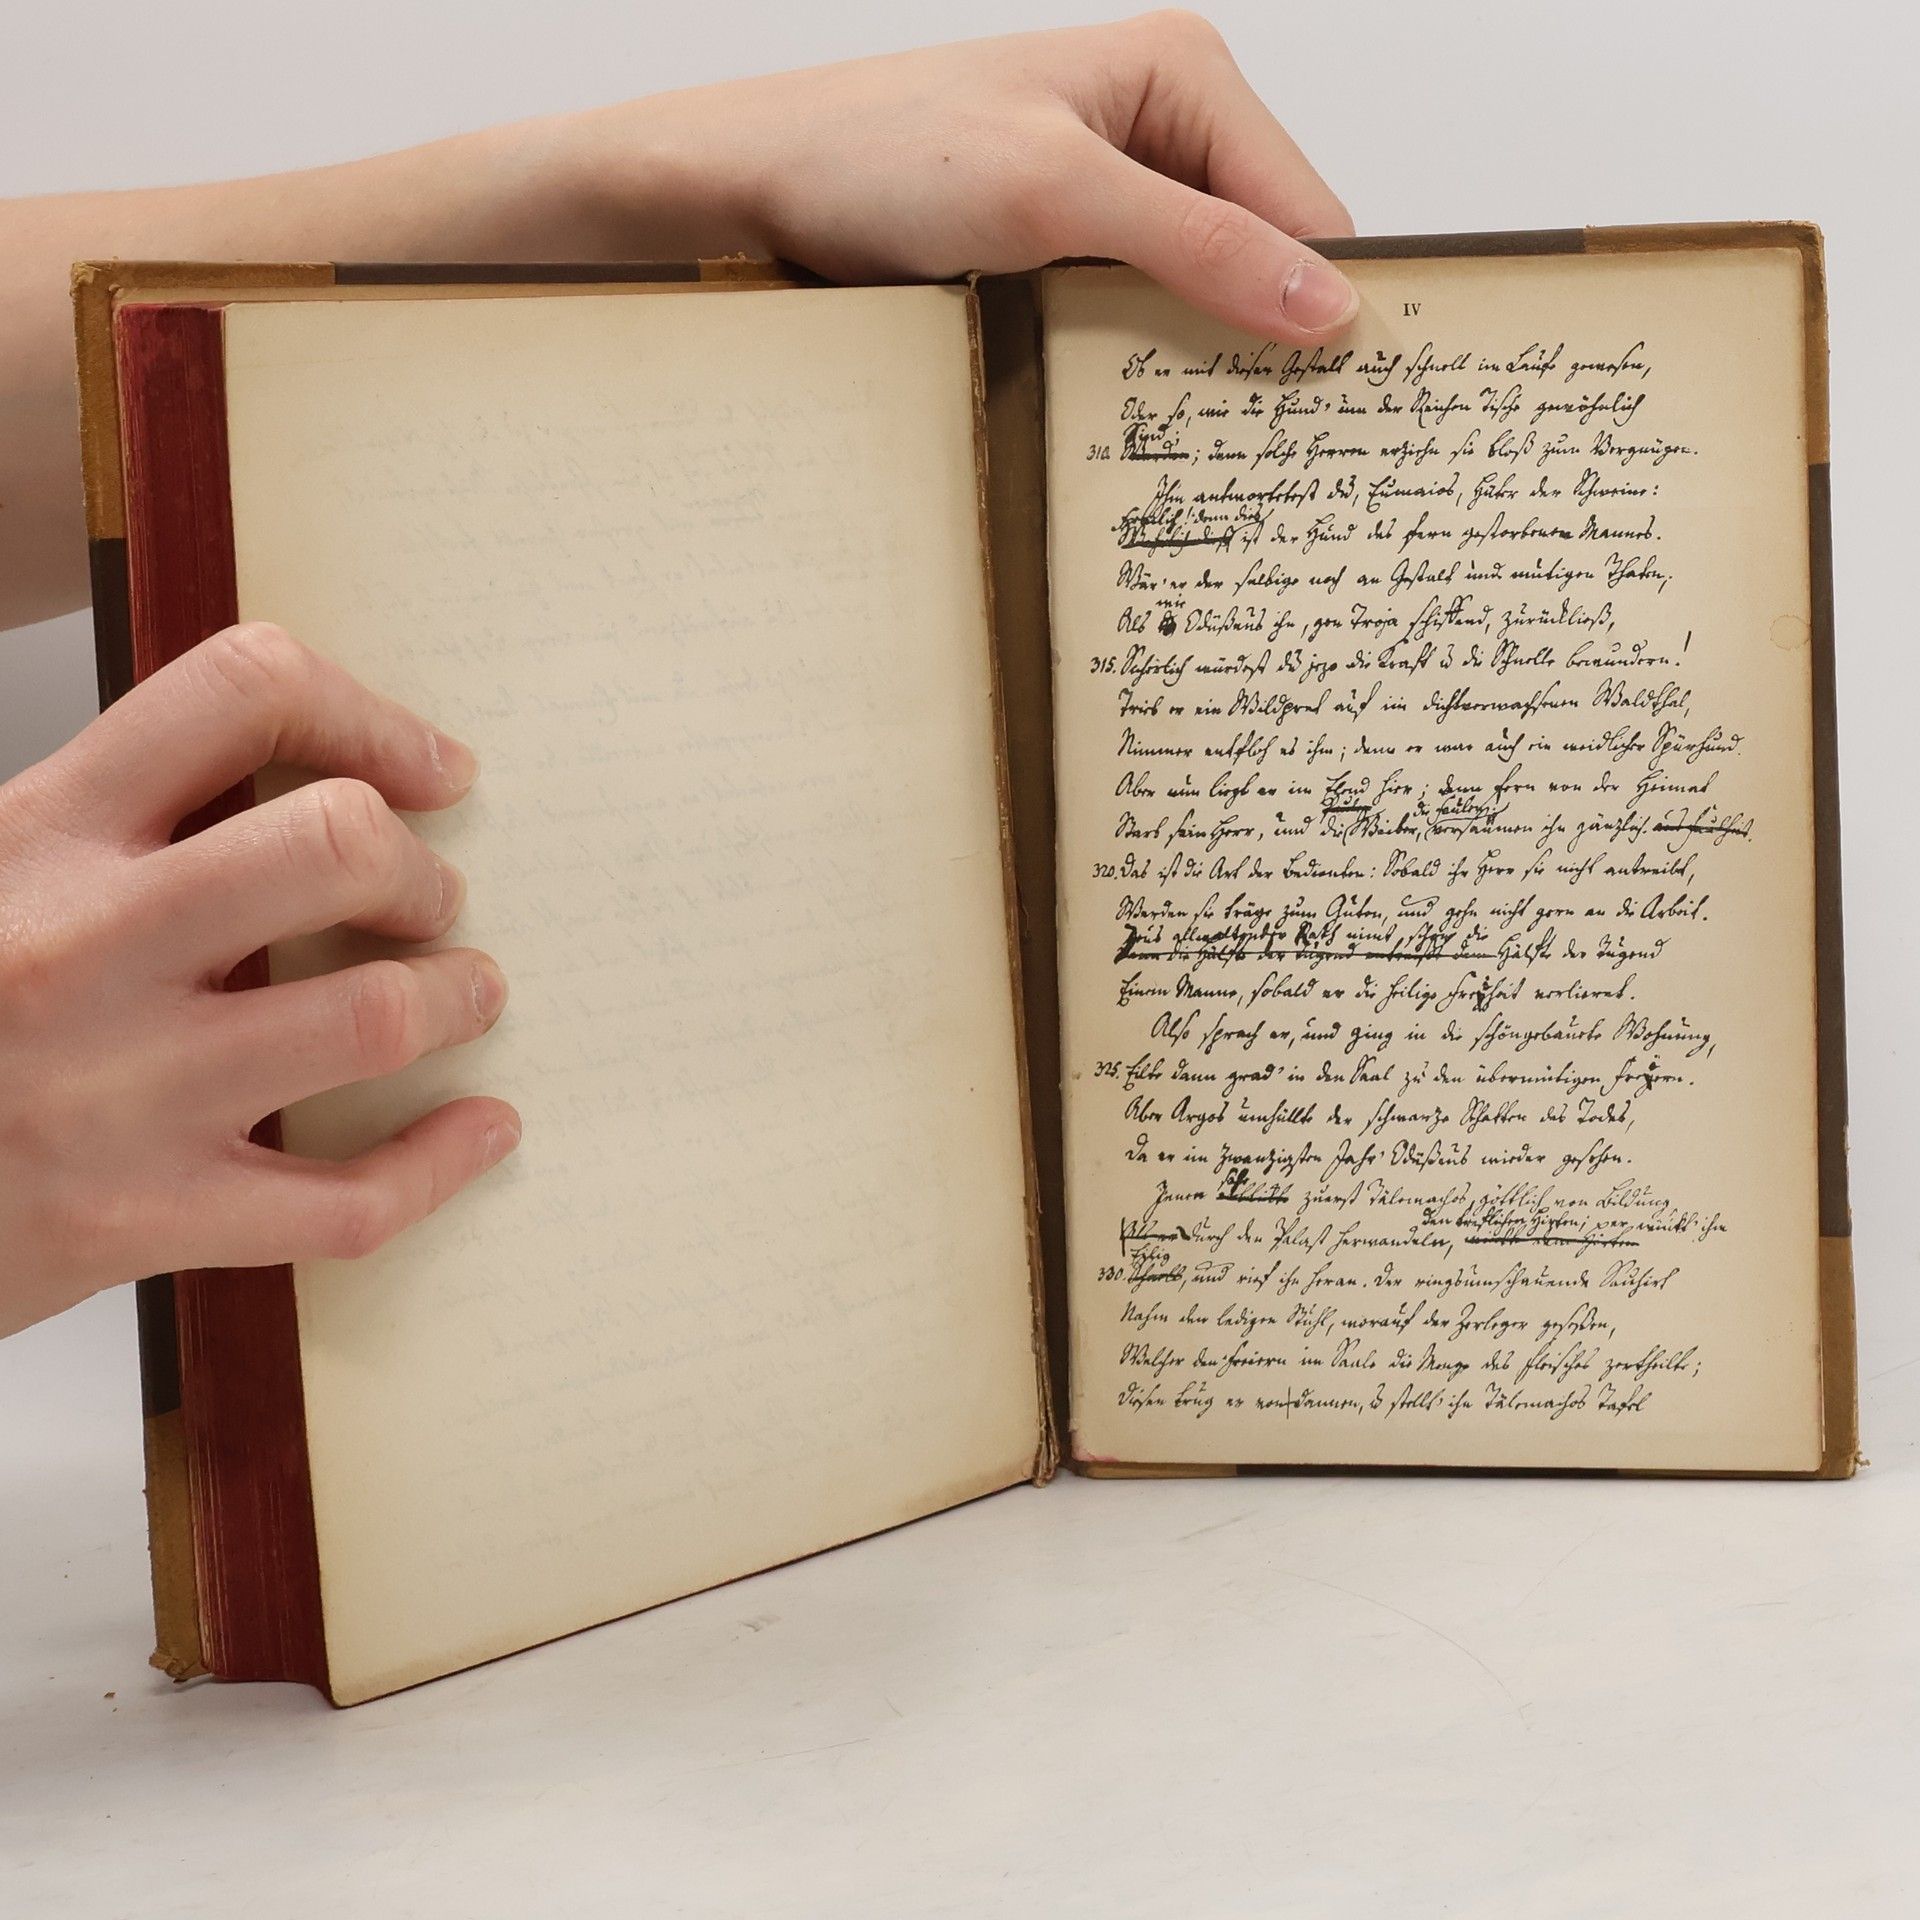 IV
Ob er mit dieser Gestalt auch schnell im Laufe gewesen,
Oder so, wie die Hund' um der Reichen Tische gewöhnlich
Sind;
310. Werden; denn solche Herren erziehn sie bloß zum Vergnügen.
Ihm antwortetest du, Eumaios, Hüter der Schweine:
Freilich! denn dies
ist der Hund des fern gestorbenen Mannes.
Wär' er derselbige noch an Gestalt und mutigen Thaten,
wie
Als Odüßeus ihn, gen Troja schiffend, zurückließ,
315. Sicherlich würdest du jezo die Kraft u die Schnelle bewundern!
Trieb er ein Wildpret auf im dichtverwachsenen Waldthal,
Nimmer entfloh es ihm; denn er war auch ein weidlicher Spürhund.
Aber nun liegt er im Elend hier; denn fern von der Heimat
die faulen;
Starb sein Herr, und die Weiber, versäumen ihn gänzlich. aus Faulheit.
320. Das ist die Art der Bedienten: Sobald ihr Herr sie nicht antreibt,
Werden sie träge zum Guten, und gehn nicht gern an die Arbeit.
Zeus allwaltender Rath nimt schon die
Denn die Hälfte der Tugend entreißt dem Hälfte der Tugend
Einem Manne, sobald er die heilige Freyheit verlieret.
Also sprach er, und ging in die schöngebauete Wohnung,
325. Eilte dann grad' in den Saal zu den übermütigen Freyern.
Aber Argos umhüllte der schwarze Schatten des Todes,
Da er im zwanzigsten Jahr' Odüßeus wieder gesehen.
sah
Jenen erblickte zuerst Tälemachos, göttlich von Bildung
den treflichen Hirten; er winkt' ihm
Als er durch den Palast herwandeln, winkte dem Hirten
Eilig
330. Schnell, und rief ihn heran. Der ringsumschauende Sauhirt
Nahm den ledigen Stuhl, worauf der Zerleger geseßen,
Welcher den Freiern im Saale die Menge des Fleisches zertheilte;
Diesen trug er von dannen, u stellt' ihn Tälemachos Tafel